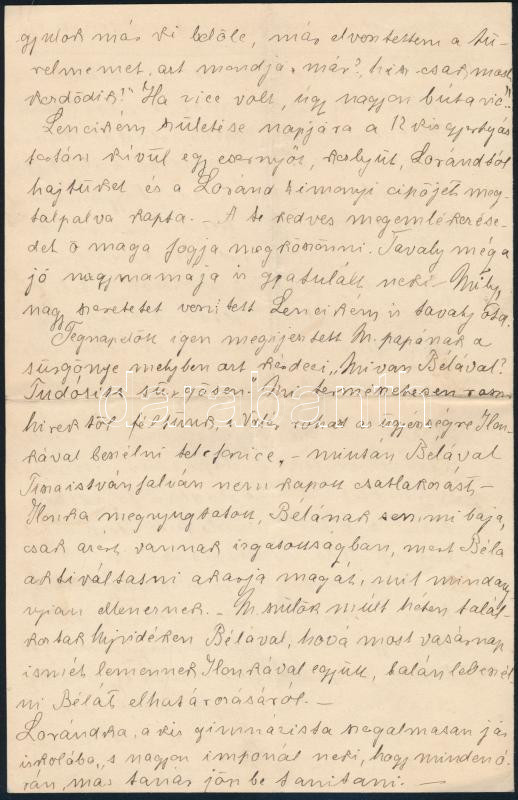 gyulok már ki belőle, már elvesztettem a tü-
relmemet, azt mondja "már?, hisz csak most
kezdődik!" Ha vicc volt, úgy nagyon buta vicc.
Lencikém születése napjára a 12 kis gyertyás
tortán kívül egy esernyőt, Lorándtól
hajtűket és a Loránd zimonyi cipőjét meg-
talpalva kapta. – A te kedves megemlékezése-
det ő maga fogja megköszönni. Tavaly még a
jó nagymamája is gratulált neki – Mily
nagy szeretetet vesztett Lencikém is tavaly óta.
Tegnapelőtt igen megijesztett M. papának a
sürgönye melyben azt kérdezi "Mi van Bélával?
Tudósíts sürgősen." Mi természetesen rossz
hírektől féltünk, s rohant az ügyészségre Ilon-
kával beszélni telefonice, – miután Bélával
Tiszaistvánfalván nem kapott csatlakozást –
Ilonka megnyugtatott, Bélának semmi baja,
csak azért vannak izgatottságban, mert Béla
aktiváltatni akarja magát, mit mindany-
nyian elleneznek. – M. szülők múlt héten talál-
koztak Újvidéken Bélával, hová most vasárnap
ismét lemennek Ilonkával együtt, talán lebeszél-
ni Bélát elhatározásáról. –
Lorándka, a kis gimnázista szorgalmasan jár
iskolába, s nagyon imponál neki, hogy minden ó-
rán, más tanár jön be tanítani. –
darabanth